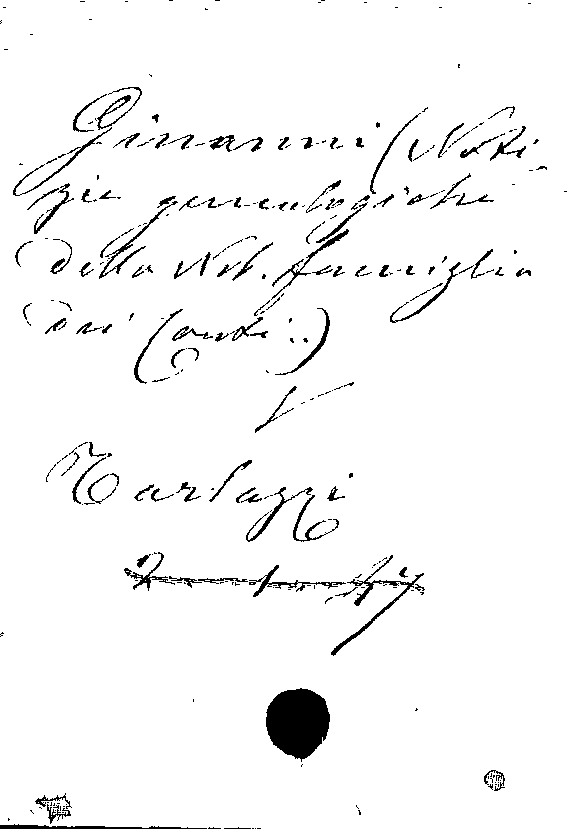 Ginanni (Noti-
zie genealogiche
della Nob. famiglia
dei Conti..)
V
Tarlazzi
2. 1. 47